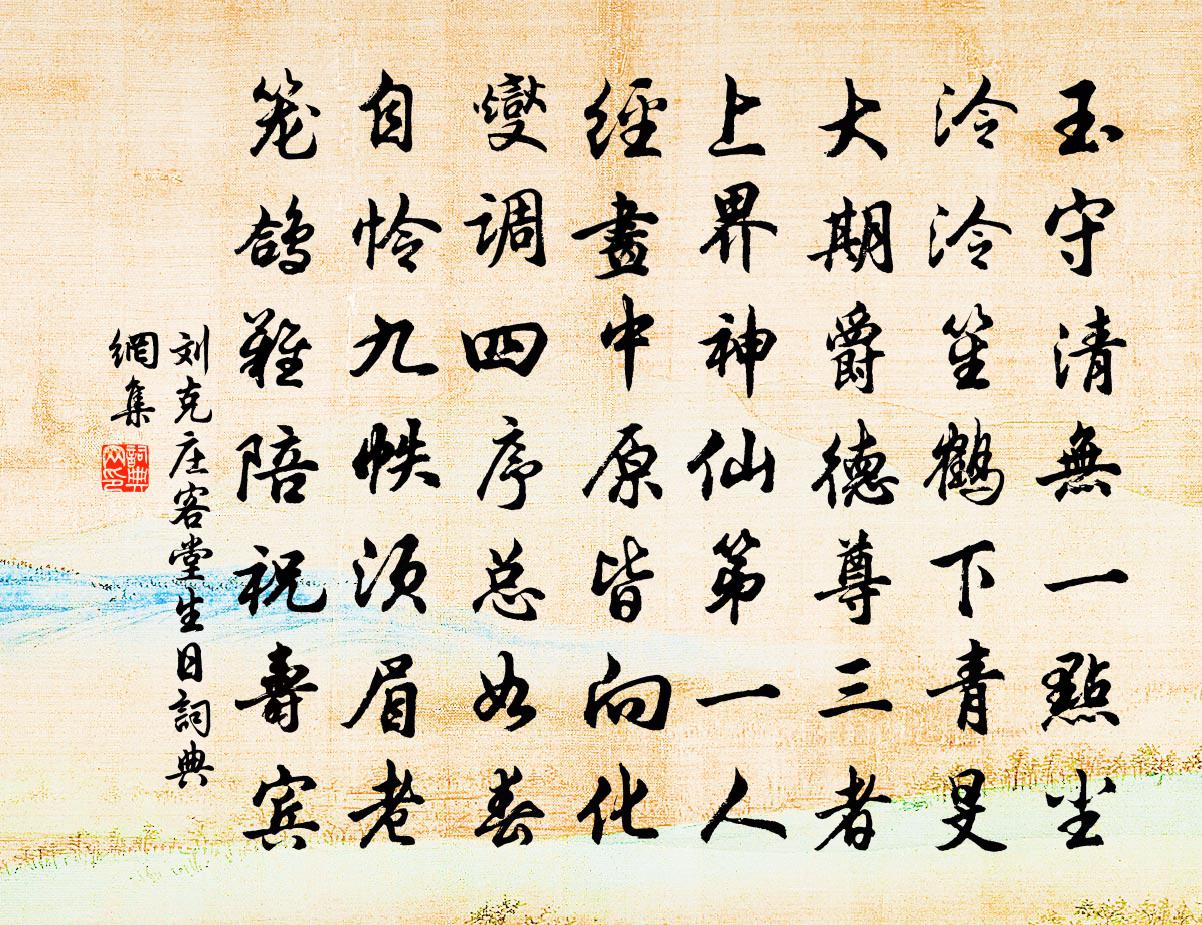 玉守清無一點尘
泠泠笙鶴下青旻
大期爵德尊三者
上界神仙第一人
經畫中原皆向化
燮調四序总如春
自怜九帙须眉老
笼鸽難陪祝壽宾
刘克庄客堂生日詞典
網集
詞典網印